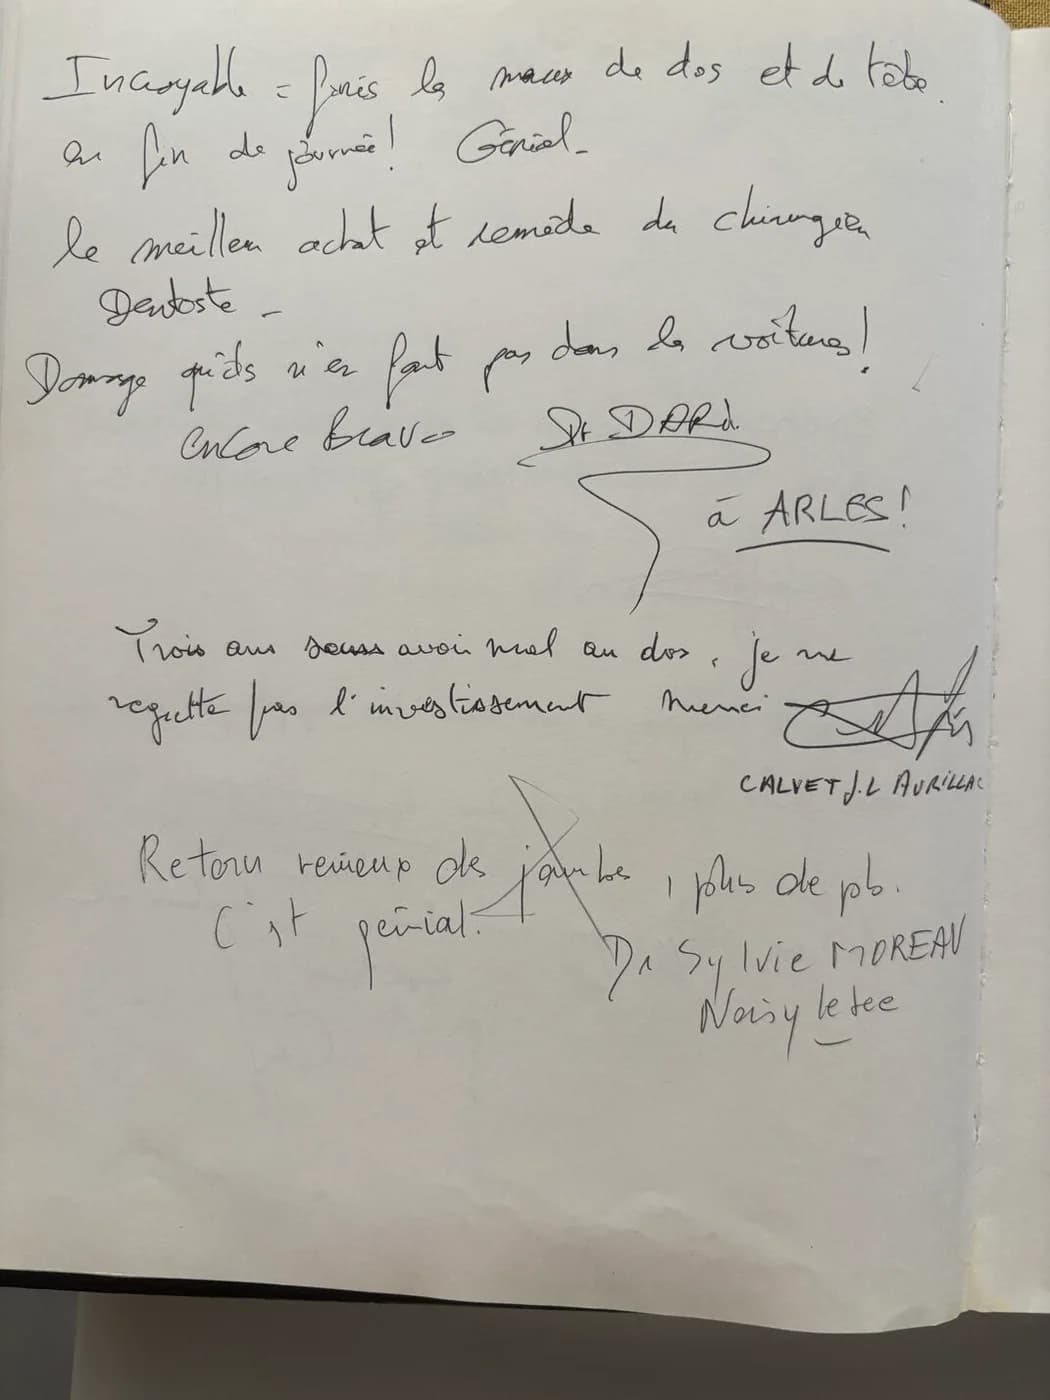 Incroyable = finis les maux de dos et de tête.
en fin de journée! Génial_
le meilleu achat et remède du chirurgien
Dentiste _
Domage qu'ils n'en font pas dans les voitures!
encore Bravo Dr DARd.
à ARLES!
Trois ans sans avoir mal au dos, je ne
regrette pas l'investissement Merci
CALVET J.L AURILLAC
Retour veineux des jambes, plus de pb.
C'est génial.
Dr Sylvie MOREAU
Noisy le sec